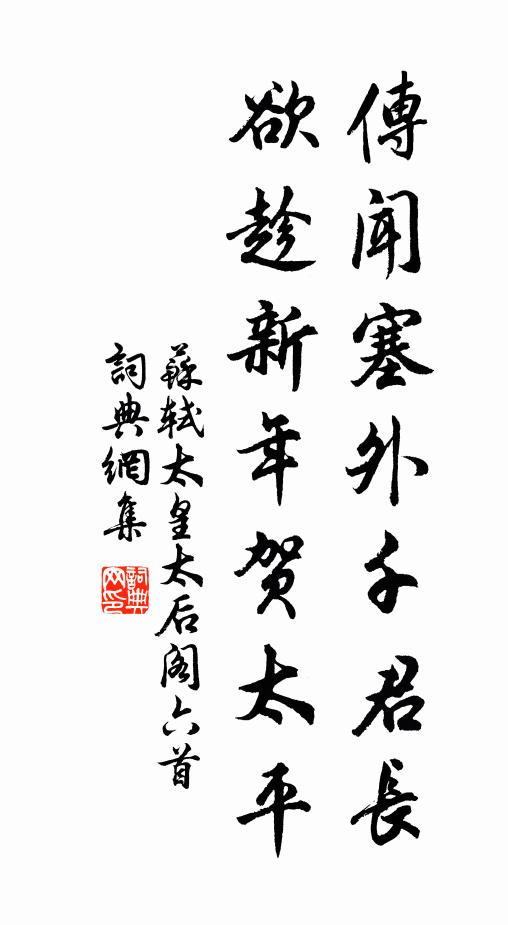 傳聞塞外千君長
欲趁新年贺太平
蘇軾太皇太后阁六首
詞典網集
詞典网印